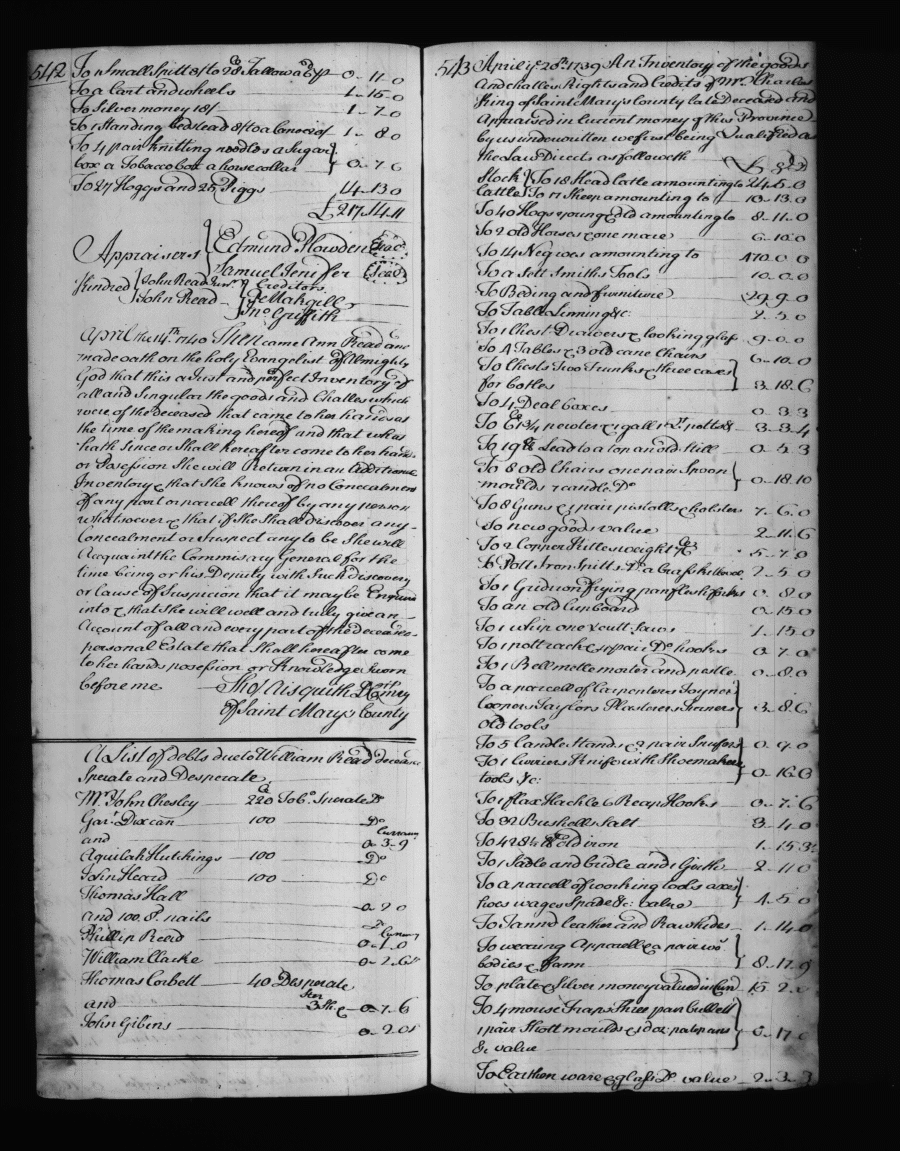 542
To 1 Small Spitt 8/ to 28 lb Tallow a 3d p 0-11-0
To a Cart and wheels 1-15-0
To Silver money 18/ 1-7-0
To 1 Standing bedstead 8/ to a 1-8-0
To 4 pair knitting needles a Sugar
box a Tobacco box a horse collar 0-7-6
To 27 Hoggs and 25 Piggs 14-13-0
£217.14.11
Appraisers Edmund Plowden Seal
Samuel Jenifer Seal
Kindred John Read Junr. Creditors
John Read Ge Makgill
Jno. Griffith
April the 14th 1740 Then came Ann Read and
made oath on the holy Evangelist of Almighty
God that this a Just and perfect Inventory of
all and Singular the goods and Challes which
were of the deceased that came to her hands at
the time of the making hereof and that what
hath Since or Shall hereafter come to her hands
or Posession She will Return in an Additional
Inventory & that She knows of no Concealment
of any part or parcell thereof by any person
whatsoever & that if She Shall discover any
Concealment or Suspect any to be She will
Acquaint the Commisary General for the
time being or his Deputy with Such discovery
or cause of Suspicion that it may be Enquired
into & that She will well and truly give an
Account of all and every part of the deceaseds
personal Estate that Shall hereafter come
to her hands posession or Knowledge Sworn
before me Thos Aisquith D Comry
of Saint Marys County
A List of debts due to William Read deceased
Sperate and Desperate
Mr. John Chesley 220 Tobo. Sperate Do
Gar. Duxcan 100 Do
Currency
and 0-3-9
Aquilah Hutchings 100 Do
John Heard 100 Do
Thomas Hall
and 100 8d. nails 0-2-0
Phillip Reed 0-1-0
William Clarke 0-2-6
Thomas Corbell 40 Desperate
and 0-7-6
John Gibins 0-2-0
543 April ye 28th 1739 An Inventory of the goods
and challes Rights and Credits of Mr. Charles
King of Saint Marys County late Deceased and
Appraised in Current money of this Province
by us underwritten we first being Qualified as
the Law Directs as followeth £ S D
Stock To 18 Head Catle amounting to 24.5.0
Cattle To 17 Sheep amounting to 10-13.0
To 40 Hogs young & old amounting to 8-11.0
To 2 old Horses & one mare 6-10.0
To 14 Negroes amounting to 470.0.0
To a Sett Smiths Tools 10.0.0
To Beding and furniture 29.9.0
To Table Linning &c: 2.5.0
To 1 Chest Drawers & looking glass 9.0.0
To 4 Tables & 3 old cane Chairs 6-10.0
To Chests Two Trunks & three cases
for botles 3.18.6
To 4 Deal boxes 0.3.3
To lb 134 pewter & 1 gall 1 qt. potts & 3-3-4
To 19 lb Lead to a top an old Still 0.5.3
To 8 old Chairs one pair Spoon
moulds 1 candle Do 0-18.10
To 8 Guns & 1 pair pistolls & holsters 7.6.0
To new goods value 2-11.6
To 2 Copper Kittles weight 5.7.0
To Pott Iron Spitts & Do a brass Skillet 2.5.0
To 1 Gridiron frying pan flesh forks 0.8.0
To an old Cupboard 0.15.0
To 1 whip one X cutt Saws 1.15.0
To 1 pott rack & 1 pair Do hooks 0.7.0
To 1 Bell mettle morter and pestle 0.8.0
To a parcell of Carpenters Joyner
Coopers Taylors Plasterers Turners
old tools 3.8.6
To 5 Candle Stands & 2 pair Snufers 0.9.0
To 1 Curriers Knife with Shoemakers
tools &c: 0-16.0
To 1 flax Hackle 6 Reap Hooks 0-7.6
To 32 Bushells Salt 3.4.0
To 428 1/4 lb old iron 1-15.3
To 1 Sadle and bridle and 1 Girth 2-11.0
To a parcell of working tools axes
hoes wages Spade &c: value 4.5.0
To Tannd leather and Raw hides 1-14.0
To wearing Apparell & a pair wo.
bodies & fann 8-17.9
To plate & Silver money valued in Curr 15.2.0
To 4 mouse Traps Three pair bullett
1 pair Shott moulds & 1 doz: patepans
& value 0-17.0
To Earthen ware & glass Do value 2-3-3